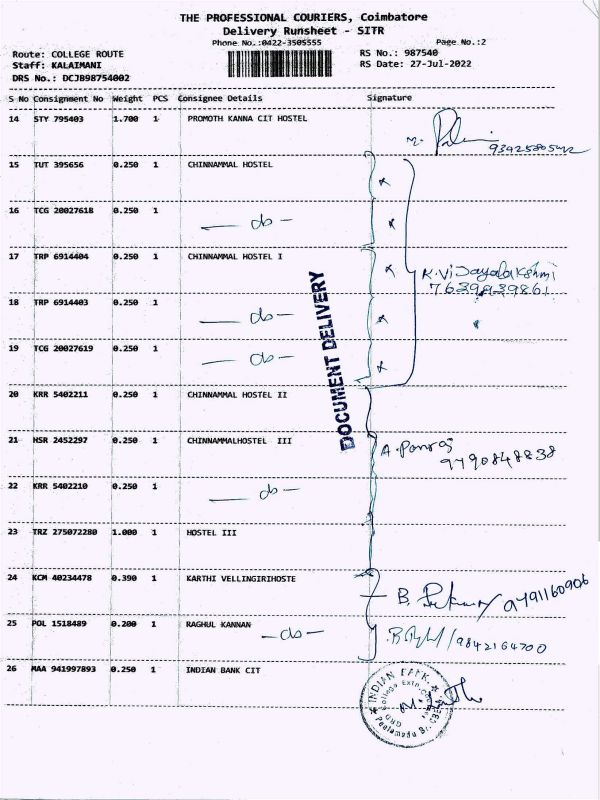 THE PROFESSIONAL COURIERS, Coimbatore
Delivery Runsheet - SITR
Phone No.:0422-3505555 Page No.:2
Route: COLLEGE ROUTE RS No.: 987540
Staff: KALAIMANI RS Date: 27-Jul-2022
DRS No.: DCJB98754002
S No Consignment No Weight PCS Consignee Details Signature
14 STY 795403 1.700 1 PROMOTH KANNA CIT HOSTEL
15 TUT 395656 0.250 1 CHINNAMMAL HOSTEL
16 TCG 20027618 0.250 1 — do —
17 TRP 6914404 0.250 1 CHINNAMMAL HOSTEL I
K. Vijayalakshmi
7639839861
18 TRP 6914403 0.250 1 — do —
19 TCG 20027619 0.250 1 — do —
DOCUMENT DELIVERY
20 KRR 5402211 0.250 1 CHINNAMMAL HOSTEL II
21 HSR 2452297 0.250 1 CHINNAMMALHOSTEL III
9790848838
22 KRR 5402210 0.250 1 — do —
23 TRZ 275072280 1.000 1 HOSTEL III
24 KCM 40234478 0.390 1 KARTHI VELLINGIRIHOSTE
9791160906
25 POL 1518489 0.200 1 RAGHUL KANNAN — do — 9842164700
26 MAA 941997893 0.250 1 INDIAN BANK CIT
INDIAN BANK